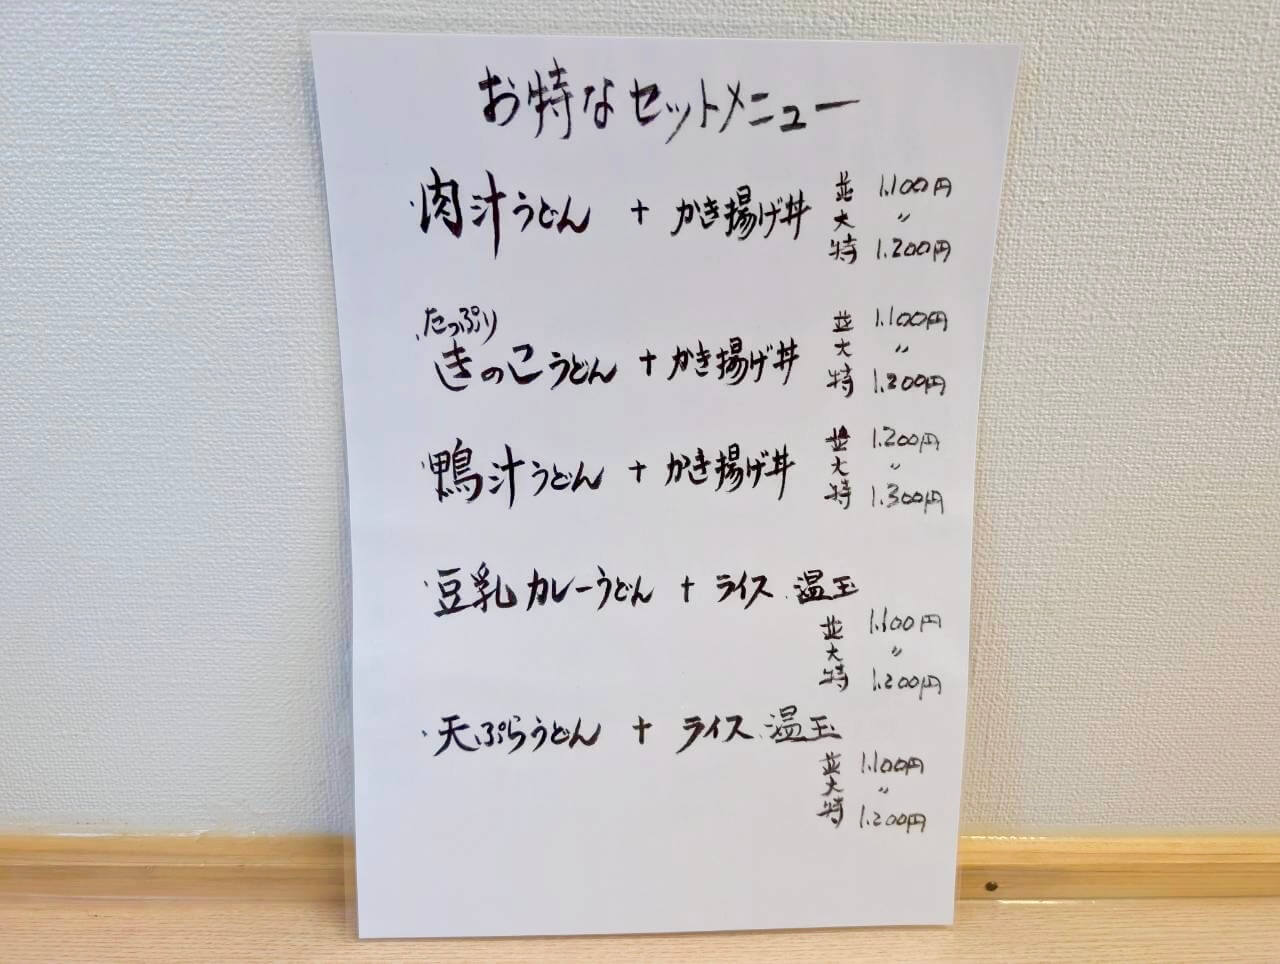 お特なセットメニュー
・肉汁うどん + かき揚げ丼 並 1.100円
大 〃
特 1.200円
・たっぷり
きのこうどん + かき揚げ丼 並 1.100円
大 〃
特 1.200円
・鴨汁うどん + かき揚げ丼 並 1.200円
大 〃
特 1.300円
・豆乳カレーうどん + ライス、温玉
並 1.100円
大 〃
特 1.200円
・天ぷらうどん + ライス、温玉
並 1.100円
大 〃
特 1.200円